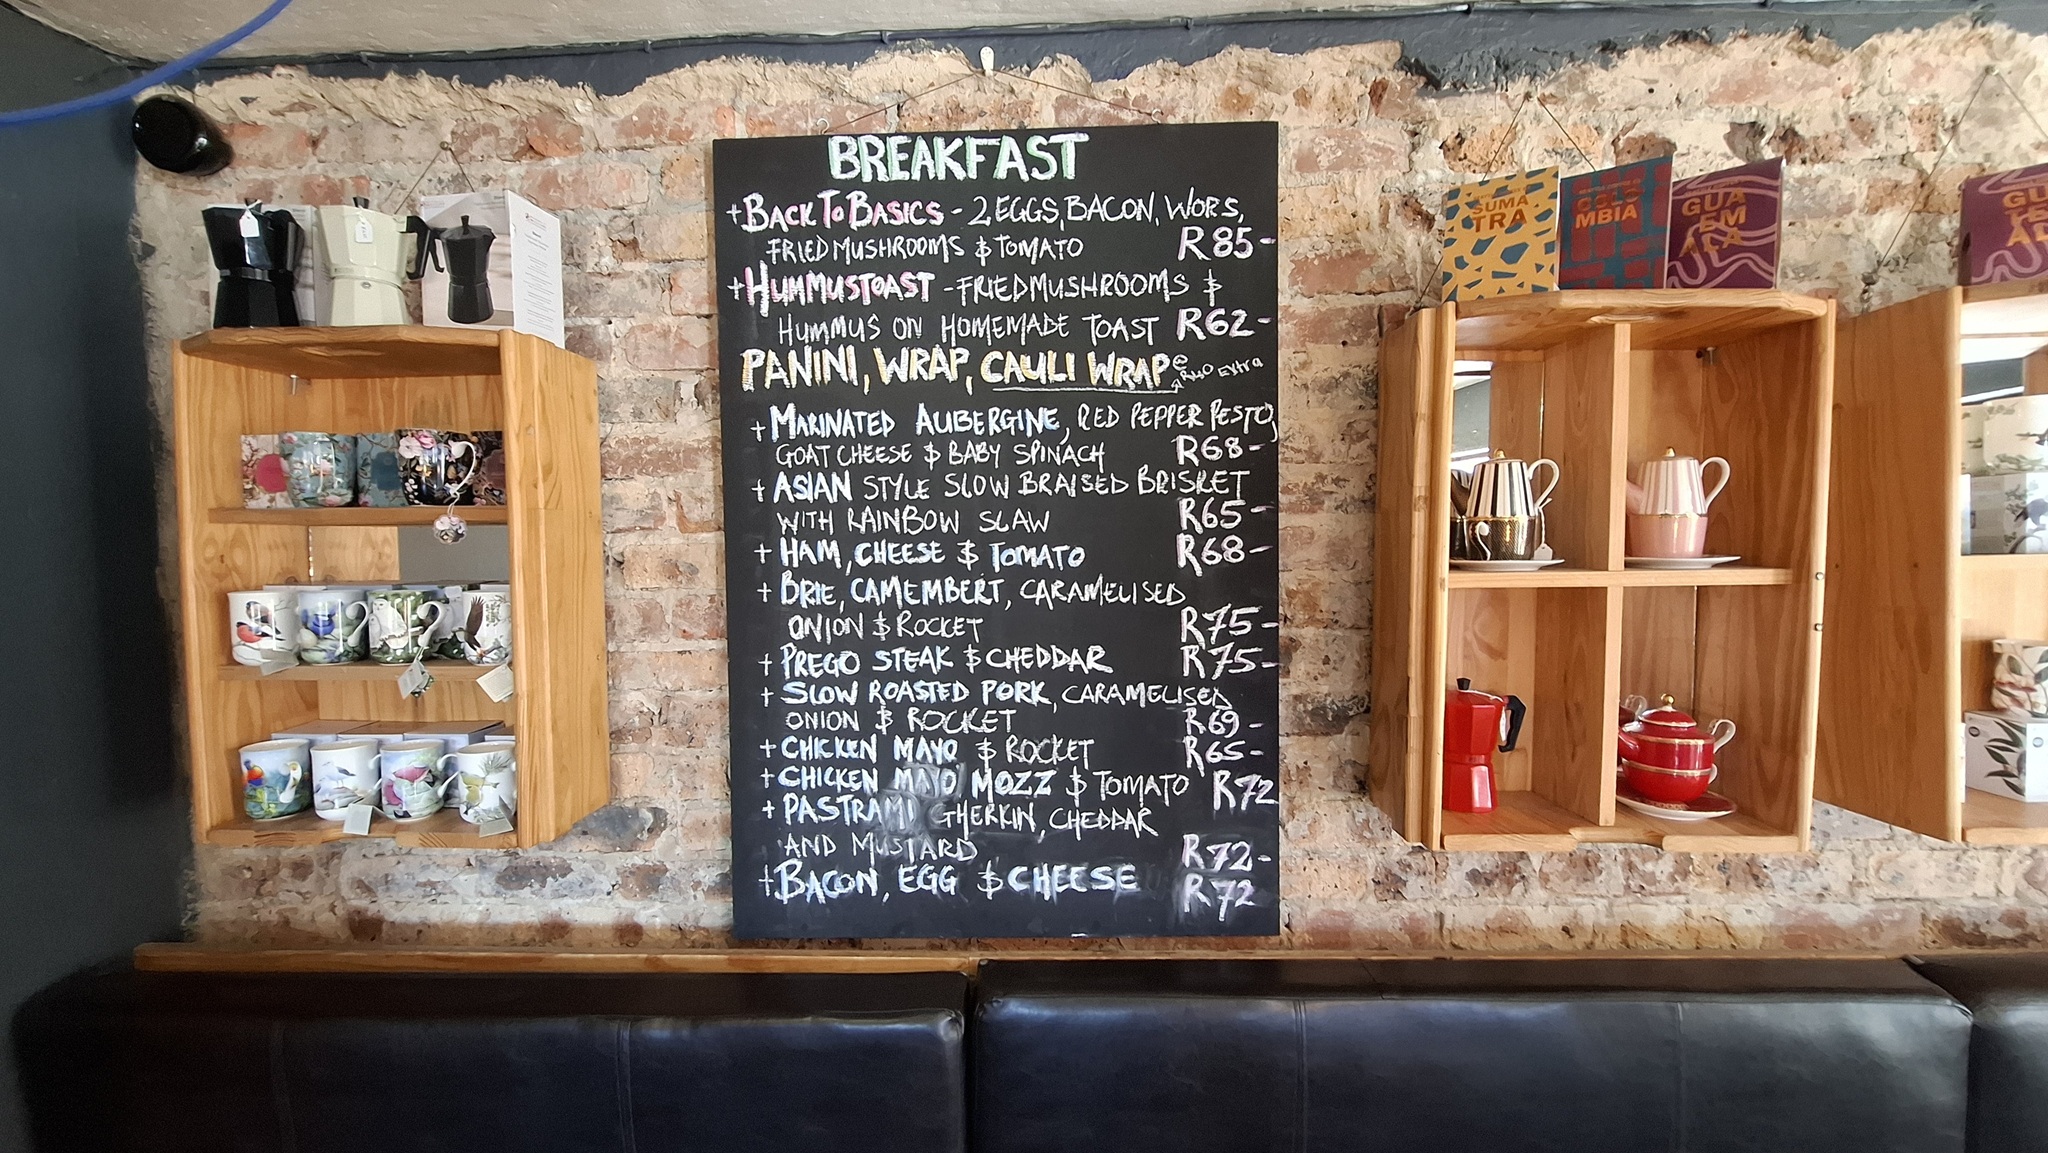 BREAKFAST
+ BACK TO BASICS - 2 EGGS, BACON, WORS,
FRIED MUSHROOMS & TOMATO R85-
+ HUMMUS TOAST - FRIED MUSHROOMS &
HUMMUS ON HOMEMADE TOAST R62-
PANINI, WRAP, CAULI WRAP @ R40 EXTRA
+ MARINATED AUBERGINE, RED PEPPER PESTO,
GOAT CHEESE & BABY SPINACH R68-
+ ASIAN STYLE SLOW BRAISED BRISKET
WITH RAINBOW SLAW R65-
+ HAM, CHEESE & TOMATO R68-
+ BRIE, CAMEMBERT, CARAMELISED
ONION & ROCKET R75-
+ PREGO STEAK & CHEDDAR R75-
+ SLOW ROASTED PORK, CARAMELISED
ONION & ROCKET R69-
+ CHICKEN MAYO & ROCKET R65-
+ CHICKEN MAYO MOZZ & TOMATO R72
+ PASTRAMI GHERKIN, CHEDDAR
AND MUSTARD R72-
+ BACON, EGG & CHEESE R72
SUMA
TRA
COLO
MBIA
GUA
EM
ALA